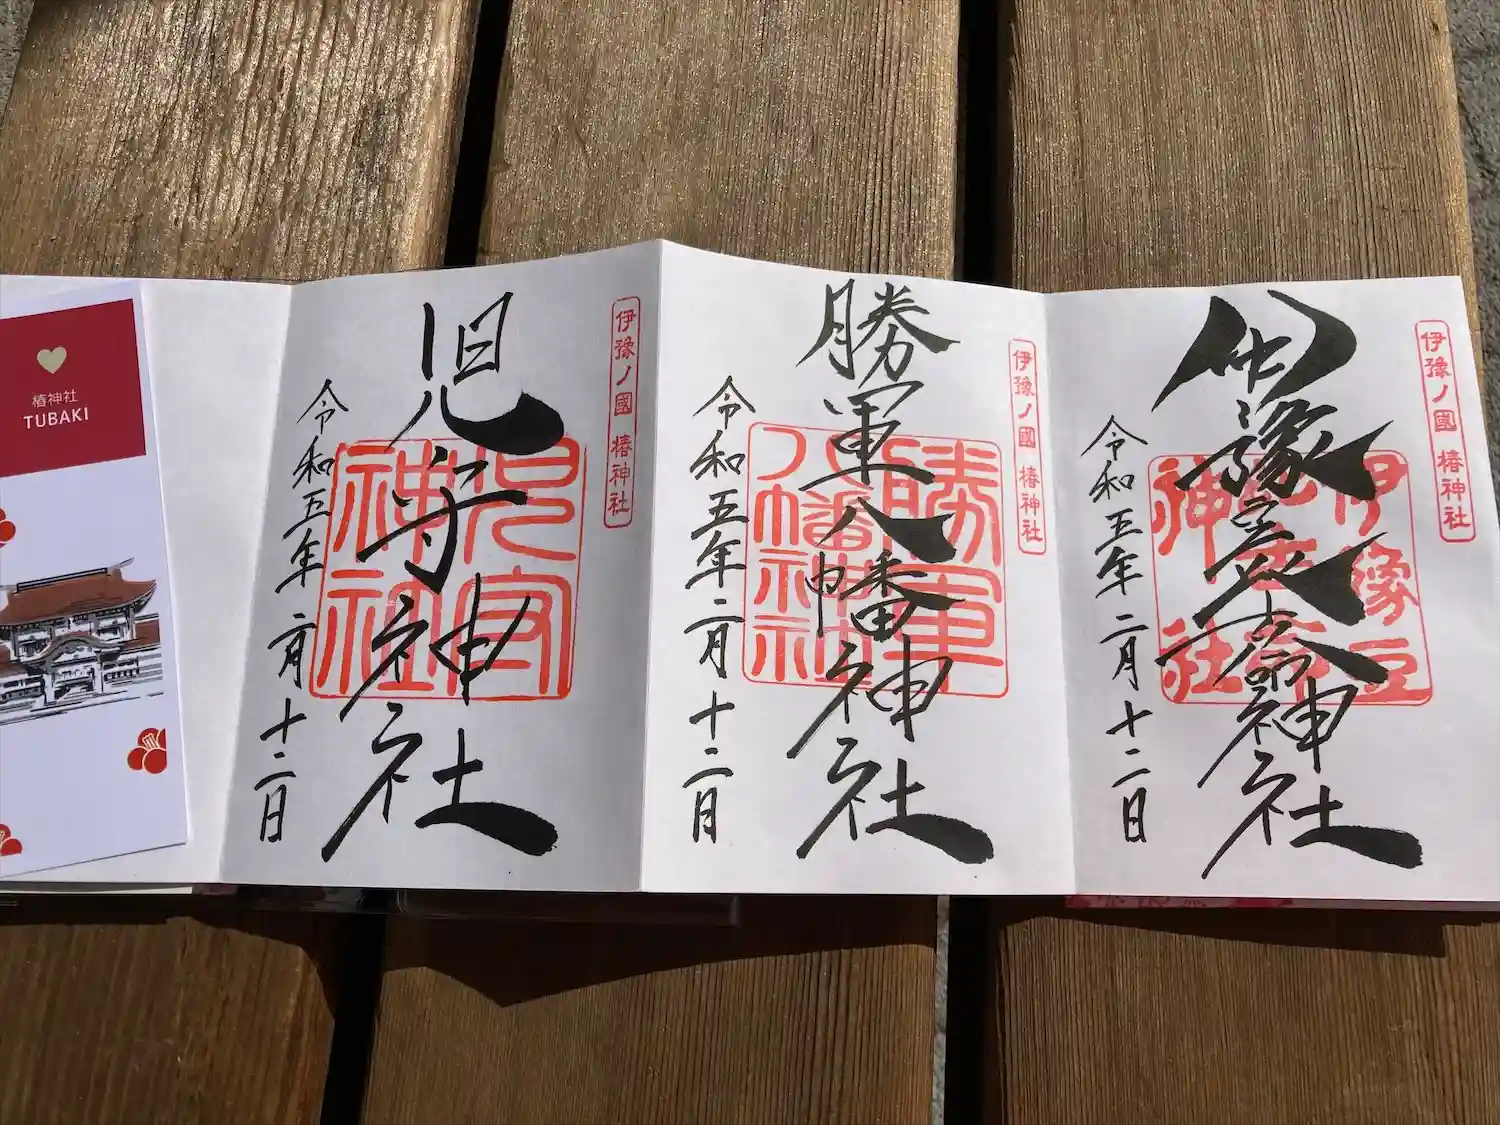 伊豫ノ國 椿神社
伊豫豆比古命神社
伊豫豆
比古命
神社
令和五年二月十二日
伊豫ノ國 椿神社
勝軍八幡神社
勝軍
八幡神社
令和五年二月十二日
伊豫ノ國 椿神社
児守神社
兒守
神社
令和五年二月十二日
椿神社
TUBAKI